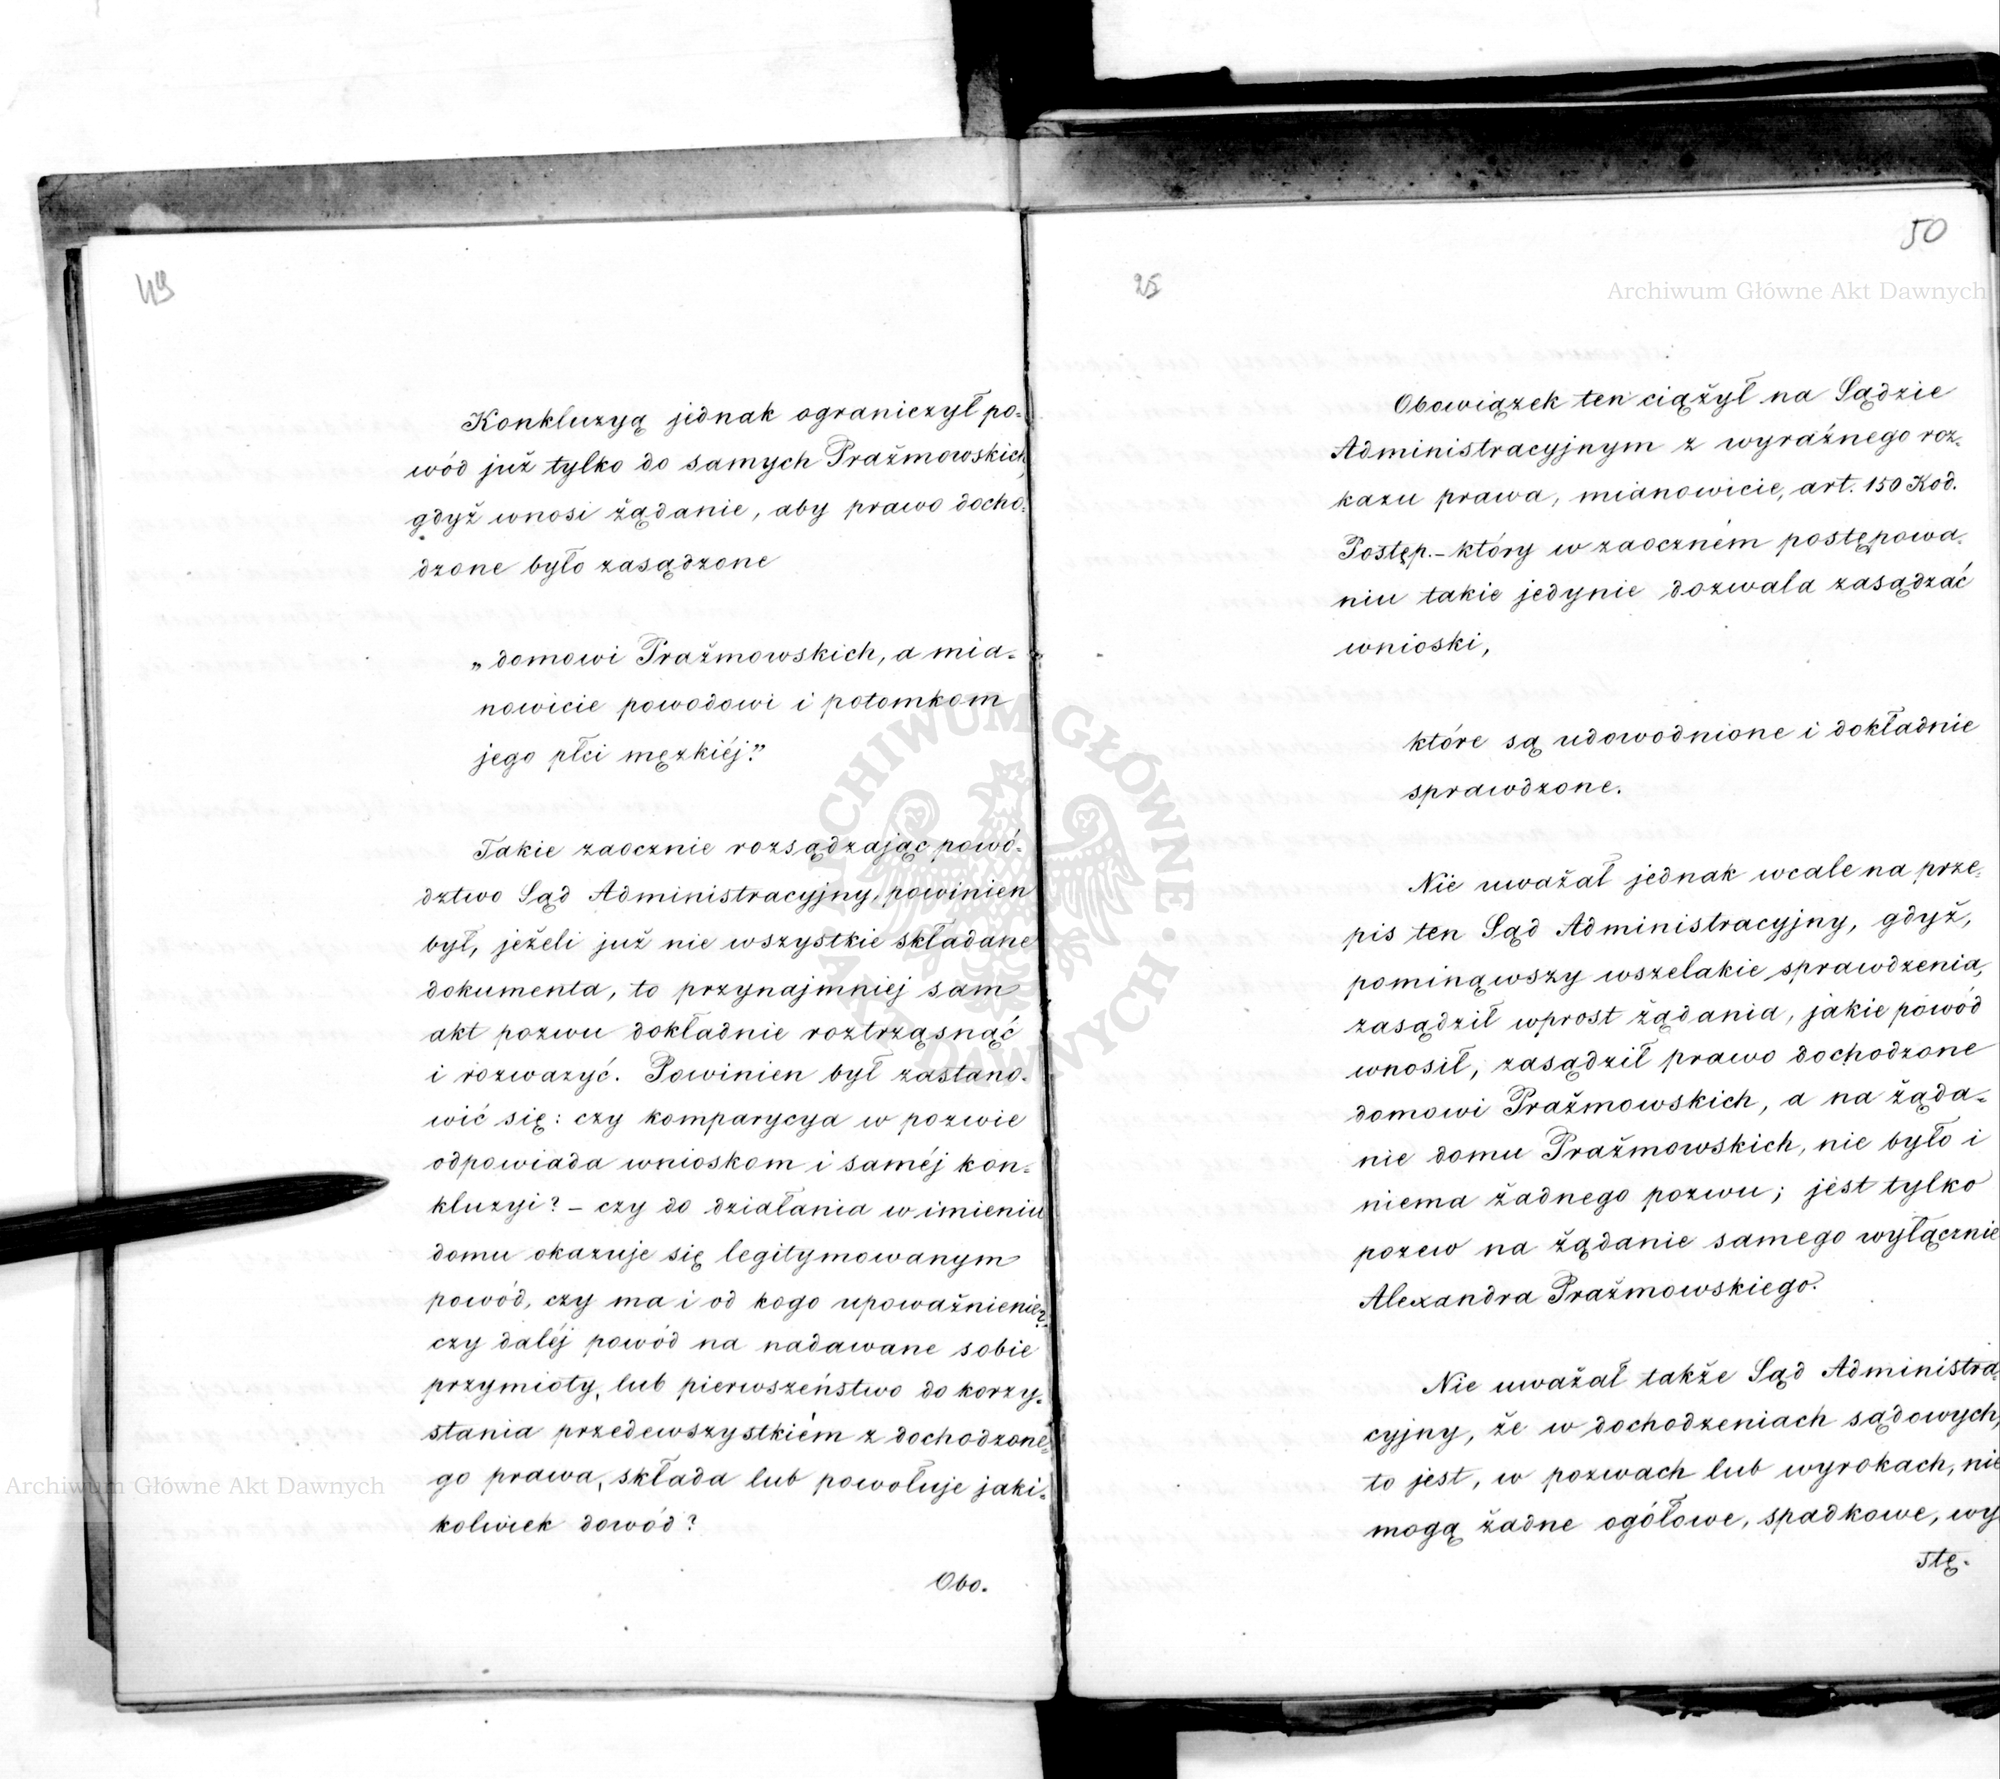 49
Konkluzyą jednak ograniczył po-
wód już tylko do samych Prażmowskich,
gdyż wnosi żądanie, aby prawo docho-
dzone było zasądzone
„domowi Prażmowskich, a mia-
nowicie powodowi i potomkom
jego płci męzkiéj."
Takie zaocznie rozsądzając powó-
dztwo Sąd Administracyjny, powinien
był, jeżeli już nie wszystkie składane
dokumenta, to przynajmniej sam
akt pozwu dokładnie roztrząsnąć
i rozwazyć. Powinien był zastano-
wić się: czy komparycya w pozwie
odpowiada wnioskom i saméj kon-
kluzyi? – czy do działania w imieniu
domu okazuje się legitymowanym
powód, czy ma i od kogo upoważnienie?
czy daléj powód na nadawane sobie
przymioty, lub pierwszeństwo do korzy-
stania przedewszystkiém z dochodzone-
go prawa, składa lub powołuje jaki-
kolwiek dowód?
Obo-
50
25
Obowiązek ten ciążył na Sądzie
Administracyjnym z wyraźnego roz-
kazu prawa, mianowicie, art. 150 Kod.
Postęp. – który w zaoczném postępowa-
niu takie jedynie dozwala zasądzać
wnioski,
które są udowodnione i dokładnie
sprawdzone.
Nie uważał jednak wcale na prze-
pis ten Sąd Administracyjny, gdyż,
pominąwszy wszelakie sprawdzenia,
zasądził wprost żądania, jakie powód
wnosił, zasądził prawo dochodzone
domowi Prażmowskich, a na żąda-
nie domu Prażmowskich, nie było i
niema żadnego pozwu; jest tylko
pozew na żądanie samego wyłącznie
Alexandra Prażmowskiego.
Nie uważał także Sąd Administra-
cyjny, że w dochodzeniach sądowych,
to jest, w pozwach lub wyrokach, nie
mogą żadne ogółowe, spadkowe, wy
stę-
Archiwum Główne Akt Dawnych
Archiwum Główne Akt Dawnych
ARCHIWUM GŁÓWNE AKT DAWNYCH